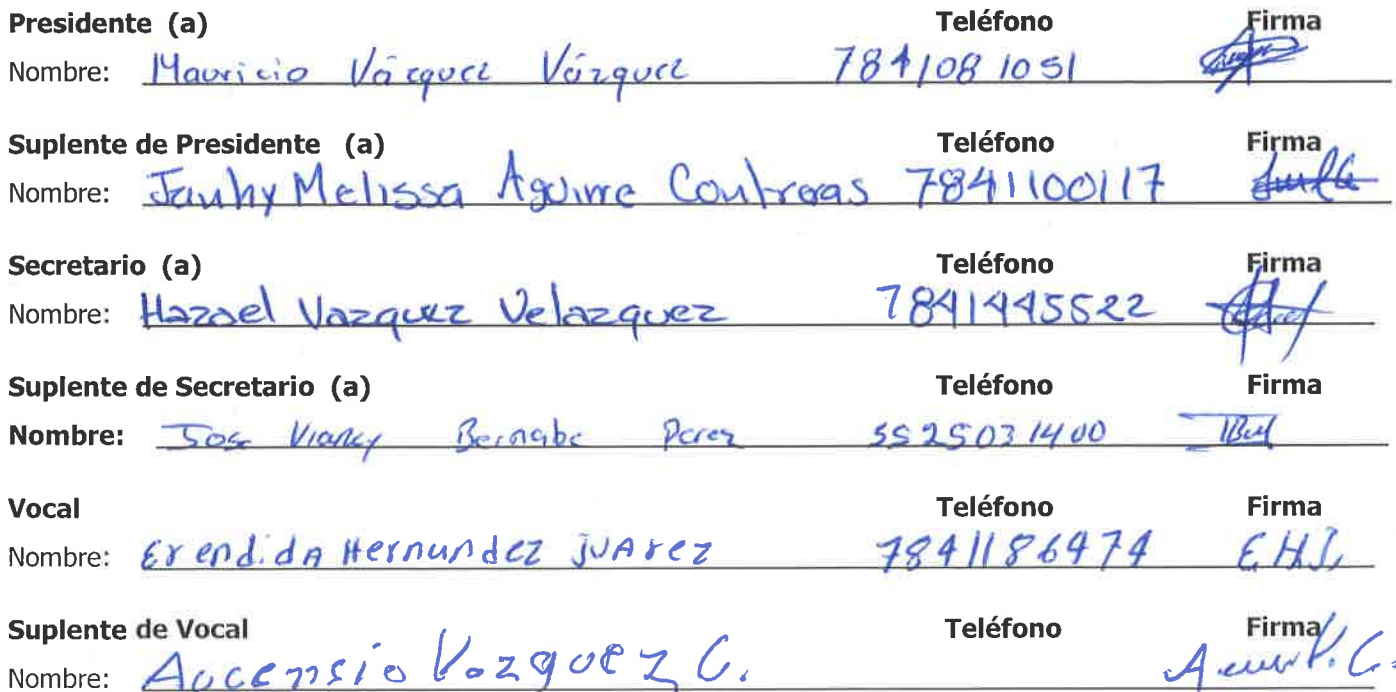 Presidente (a) Teléfono Firma
Nombre: Mauricio Vázquez Vázquez 7841081051
Suplente de Presidente (a) Teléfono Firma
Nombre: Janhy Melissa Aguirre Contreras 7841100117
Secretario (a) Teléfono Firma
Nombre: Hazael Vazquez Velazquez 7841445522
Suplente de Secretario (a) Teléfono Firma
Nombre: Jose Bernabe Perez 5525031400
Vocal Teléfono Firma
Nombre: Erendida Hernundez juArez 7841186474 E.H.J.
Suplente de Vocal Teléfono Firma
Nombre: Aucensio Vazquez C.